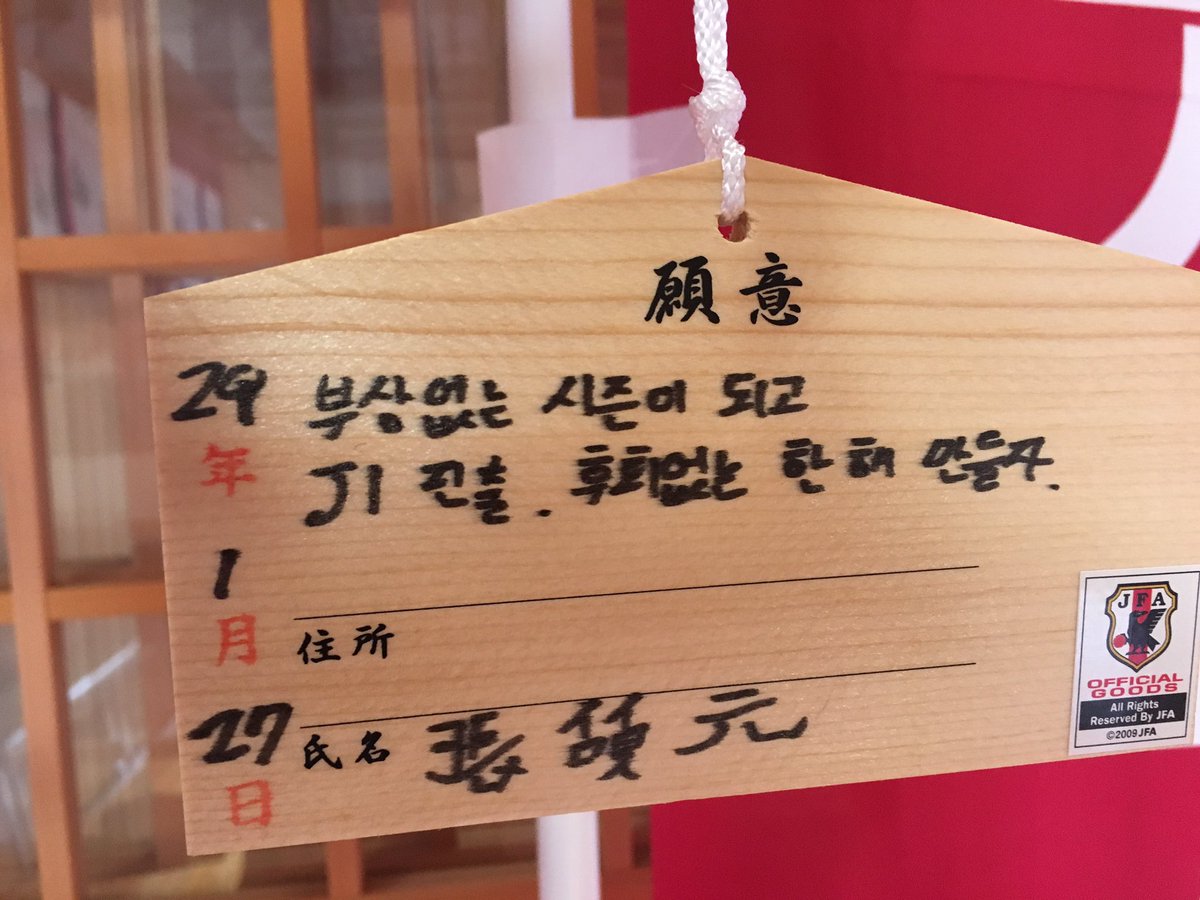 願意
29
年
1
月
27
日
부상없는 시즌이 되고
J1 진출. 후회없는 한 해 만들자.
住所
氏名 張 碩 元
JFA
OFFICIAL
GOODS
All Rights
Reserved By JFA
©2009 JFA